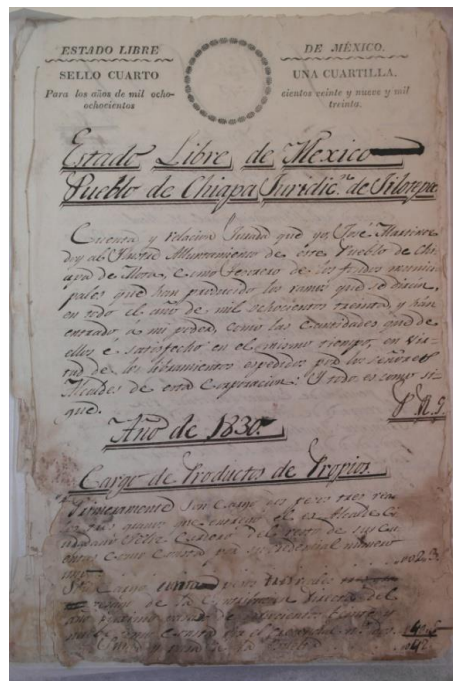 ESTADO LIBRE DE MÉXICO.
SELLO CUARTO UNA CUARTILLA.
Para los años de mil ocho- cientos veinte y nueve y mil
ochocientos treinta.
Estado Libre de Mexico
Pueblo de Chiapa Juridic.n de Jilotepec
Cuenta y relacion Jurada que yo José Martinez
doy al Ilustre Ayuntamiento de este Pueblo de Chi-
apa de Mota, como Tesorero de los fondos munici-
pales que han producido los ramos que se dirán,
en todo el año de mil ochocientos treinta, y han
entrado, a mi poder, como las Cantidades que de
ellos e satisfecho en el mismo tiempo, en vir-
tud de los libramientos espedidos por los señores
Alcaldes de esta Corporacion: Y todo es como si-
gue.
P. R. G.
Año de 1830.
Cargo de Productos de Propios.
Primeramente son cargo dos pesos tres rea-
que me entregó el ex Alcalde Ci-
udadano Felix del resto de sus Cu-
entas como consta por su numero
002.3.
Cargo
de la